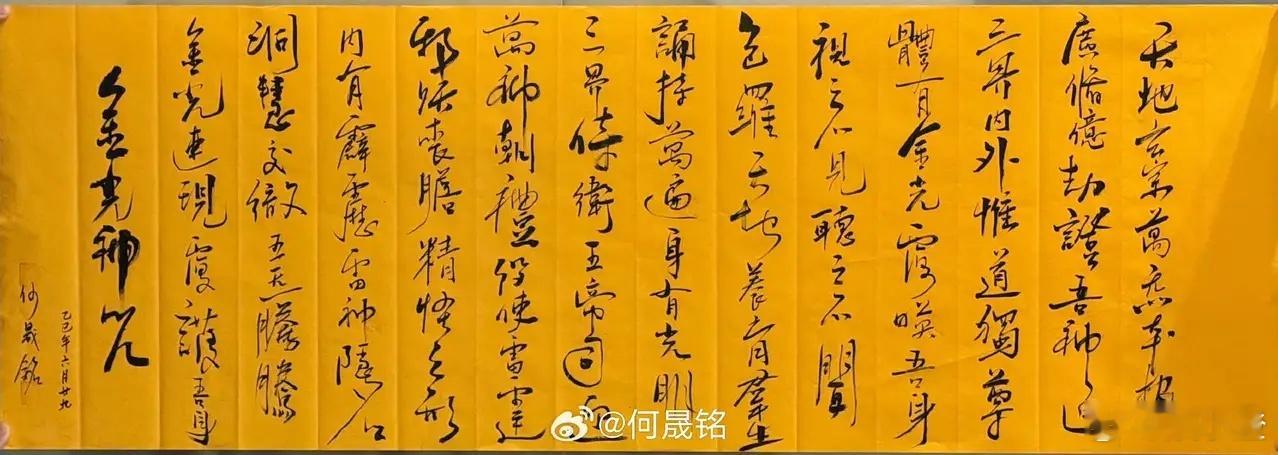 天地玄宗萬炁本根
廣脩億劫證吾神通
三界內外惟道獨尊
體有金光覆暎吾身
視之不見聽之不聞
包羅天地養育群生
誦持萬遍身有光明
三界侍衛五帝司迎
萬神朝禮役使雷霆
邪妖喪膽精怪亡形
內有霹靂雷神隱名
洞慧交徹五炁騰騰
金光速現覆護吾身
金光神咒
乙巳年六月廿九
何晟銘
@何晟铭